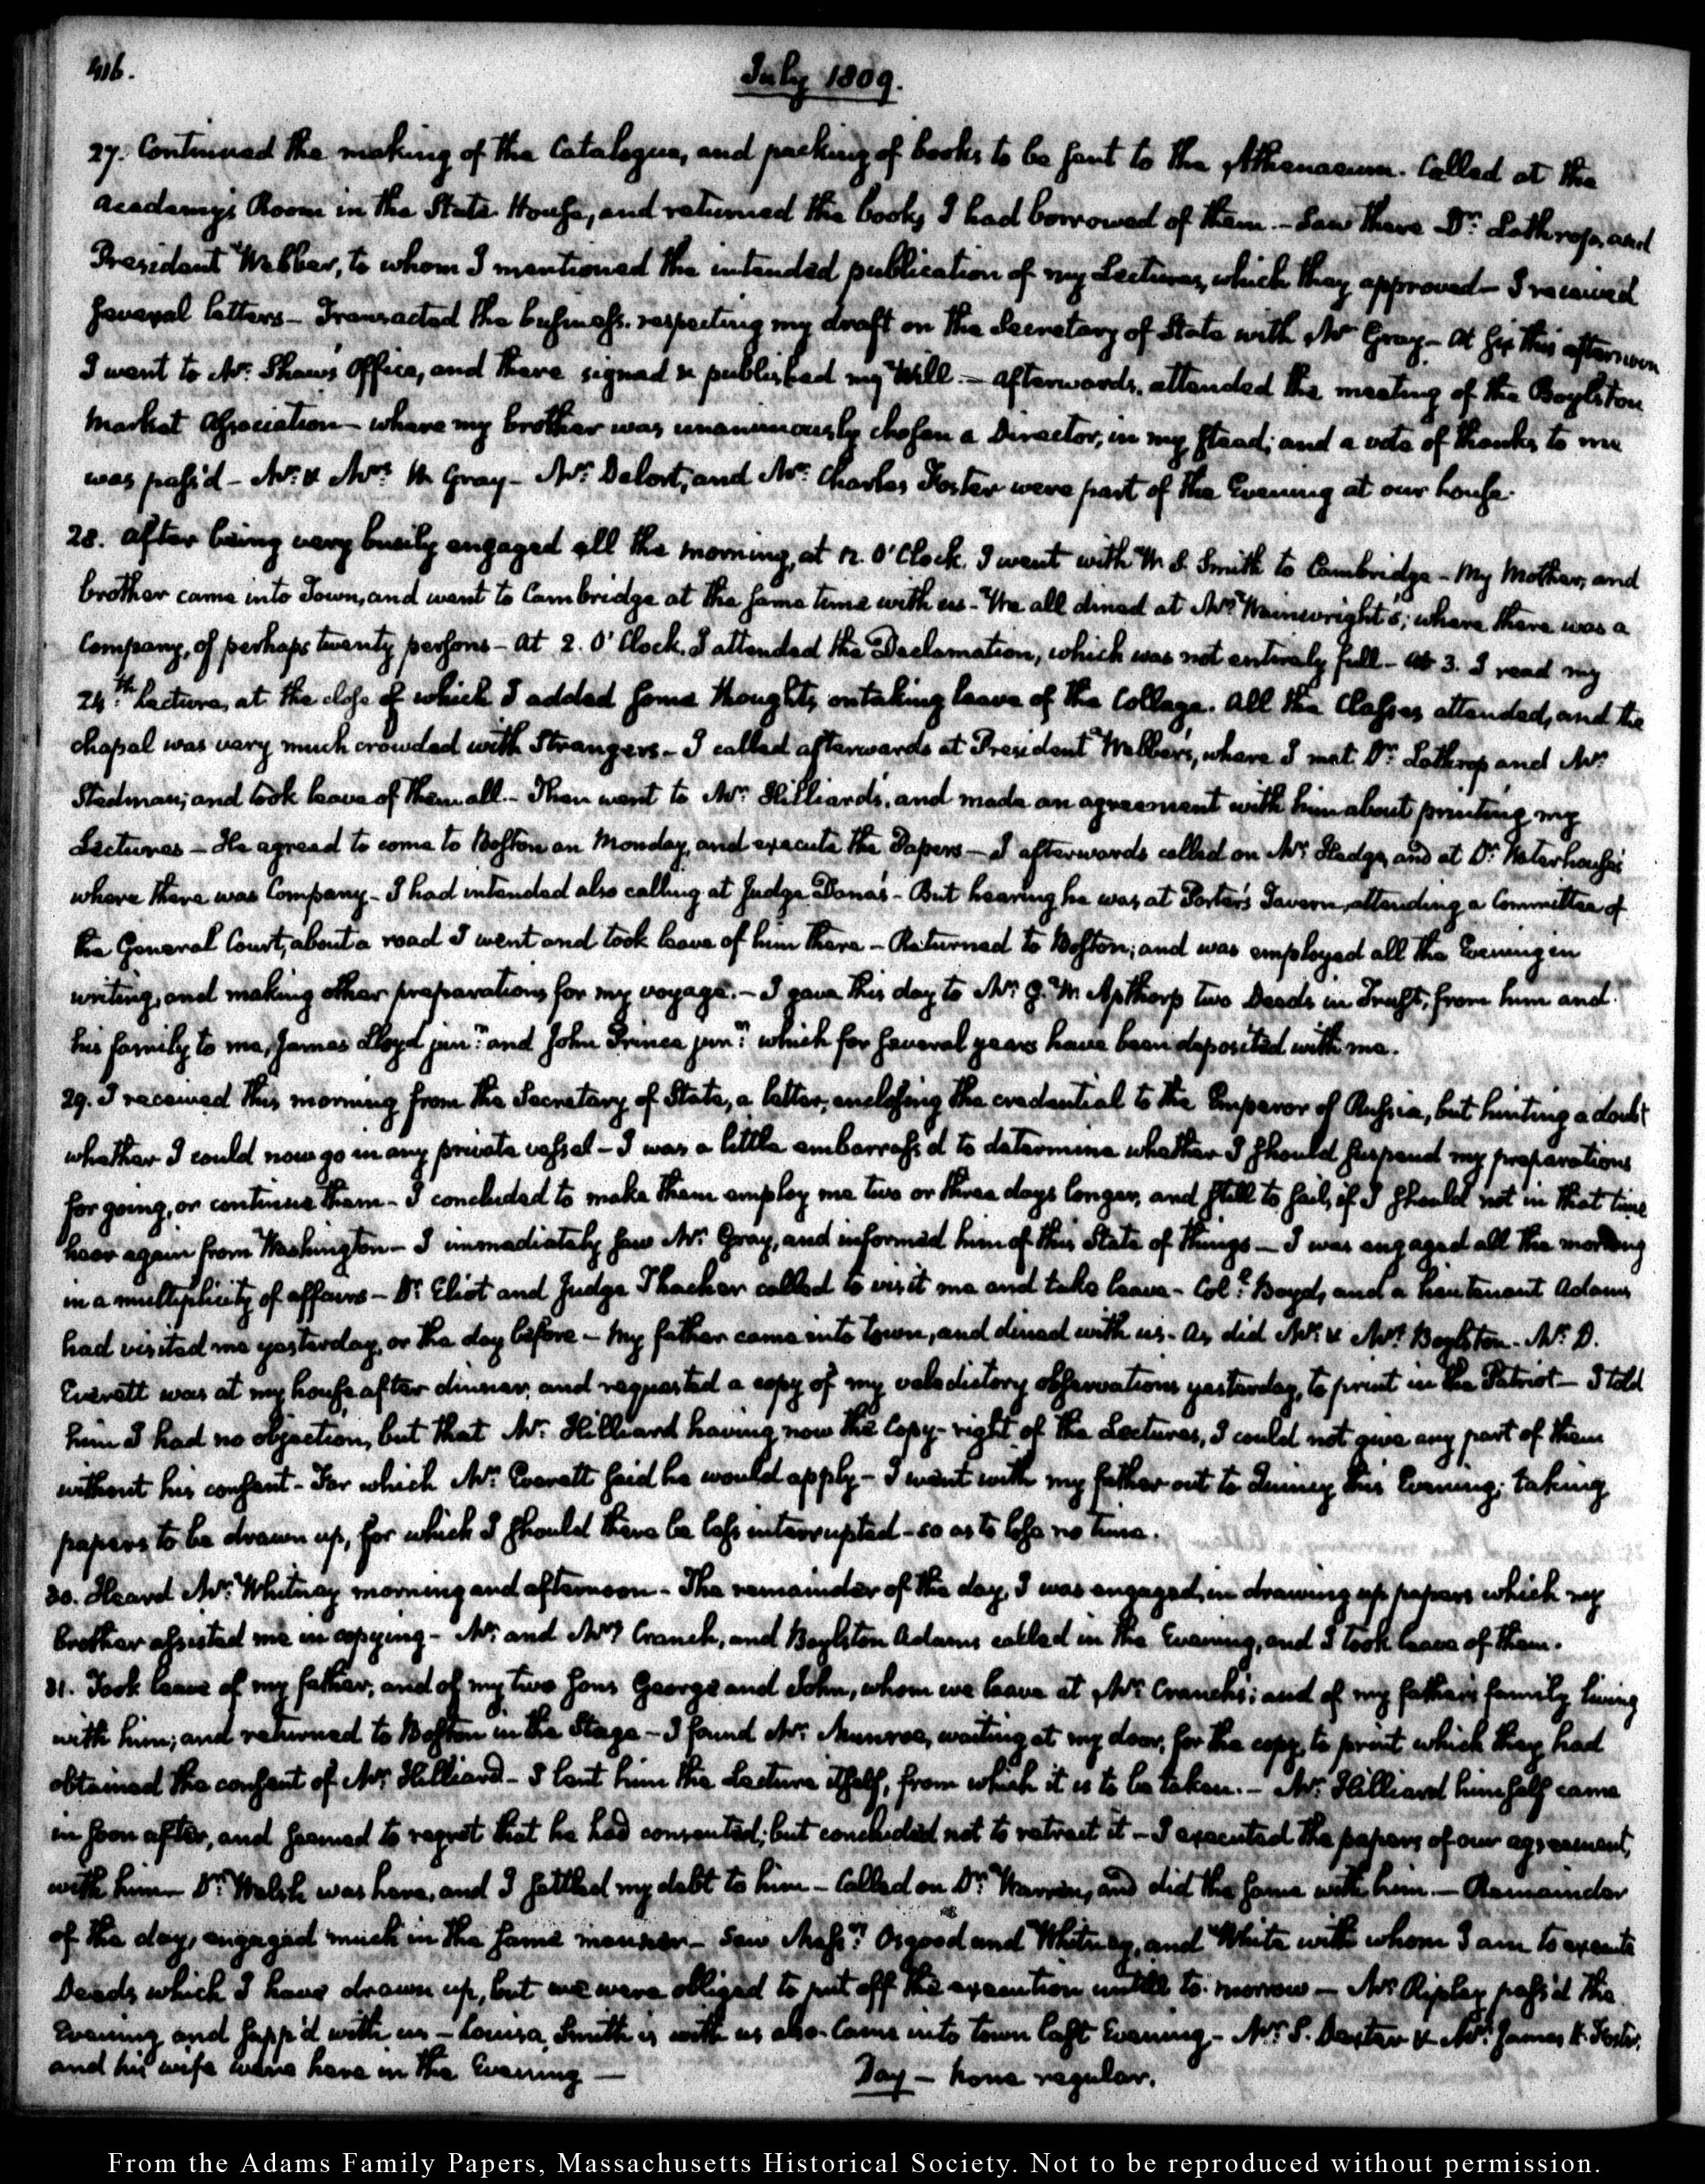 416.
July 1809.
27. Continued the making of the Catalogue, and packing of books to be sent to the Athenaeum. Called at the
Academy's Room in the State House, and returned the books I had borrowed of them. - Saw there Dr. Lothrop, and
President Webber, to whom I mentioned the intended publication of my Lectures, which they approved - I received
several letters - Transacted the business respecting my draft on the Secretary of State with Mr Gray - At six this afternoon
I went to Mr. Shaw's Office, and there signed & published my Will. - Afterwards, attended the meeting of the Boylston
Market Association - where my brother was unanimously chosen a Director, in my stead; and a vote of thanks to me
was pass'd - Mr. & Mrs. W. Gray - Mr. Delort, and Mr. Charles Foster were part of the Evening at our house.
28. After being very busily engaged all the morning, at 12. O'Clock. I went with W. S. Smith to Cambridge - My Mother, and
brother came into Town, and went to Cambridge at the same time with us - We all dined at Mrs. Wainwright's; where there was a
Company, of perhaps twenty persons - At 2. O'Clock. I attended the Declamation, which was not entirely full - At 3. I read my
24th. Lecture, at the close of which I added some thoughts, on taking leave of the College. All the Classes attended, and the
chapel was very much crowded with Strangers - I called afterwards at President Webber's, where I met Dr. Lothrop and Mr.
Stedman; and took leave of them all. - Then went to Mr. Hilliard's, and made an agreement with him about printing my
Lectures - He agreed to come to Boston on Monday, and execute the Papers - I afterwards called on Mr. Hedge, and at Dr. Waterhouse's
where there was Company - I had intended also calling at Judge Dana's - But hearing he was at Porter's Tavern, attending a Committee of
the General Court, about a road I went and took leave of him there - Returned to Boston; and was employed all the Evening in
writing, and making other preparations for my voyage. - I gave this day to Mr. G. W. Apthorp two Deeds in Trust, from him and
his family to me, James Lloyd junr. and John Prince junr. which for several years have been deposited with me.
29. I received this morning from the Secretary of State, a letter, enclosing the credential to the Emperor of Russia, but hinting a doubt
whether I could now go in any private vessel - I was a little embarrass'd to determine whether I should suspend my preparations
for going, or continue them - I concluded to make them employ me two or three days longer, and still to sail, if I should not in that time
hear again from Washington - I immediately saw Mr. Gray, and informed him of this State of things - I was engaged all the morning
in a multiplicity of affairs - Dr. Eliot and Judge Thacher called to visit me and take leave - Coll. Boyd, and a Lieutenant Adams
had visited me yesterday, or the day before - My father came into town, and dined with us - As did Mr. & Mrs. Boylston - Mr. D.
Everett was at my house after dinner, and requested a copy of my valedictory observations yesterday, to print in the Patriot - I told
him I had no objection, but that Mr. Hilliard having now the Copy-right of the Lectures, I could not give any part of them
without his consent - For which Mr. Everett said he would apply - I went with my father out to Quincy this Evening; taking
papers to be drawn up, for which I should there be less interrupted - so as to lose no time.
30. Heard Mr. Whitney morning and afternoon - The remainder of the day, I was engaged, in drawing up papers which my
brother assisted me in copying - Mr. and Mrs. Cranch, and Boylston Adams called in the Evening, and I took leave of them.
31. Took leave of my father, and of my two sons George and John, whom we leave at Mr. Cranch's; and of my father's family living
with him; and returned to Boston in the Stage - I found Mr. Munroe, waiting at my door, for the copy, to print which they had
obtained the consent of Mr. Hilliard - I lent him the Lecture itself, from which it is to be taken. - Mr. Hilliard himself came
in soon after, and seemed to regret that he had consented; but concluded not to retract it - I executed the papers of our agreement,
with him - Dr. Welsh was here, and I settled my debt to him - Called on Dr. Warren, and did the same with him. - Remainder
of the day, engaged much in the same manner - Saw Messrs. Osgood and Whitney, and White with whom I am to execute
Deeds which I have drawn up, but we were obliged to put off the execution untill to-morrow - Mr. Ripley pass'd the
Evening and supp'd with us - Louisa Smith is with us also - Came into town last Evening - Mr. S. Dexter & Mr. James H. Foster,
and his wife were here in the Evening -
Day - none regular.
From the Adams Family Papers, Massachusetts Historical Society. Not to be reproduced without permission.